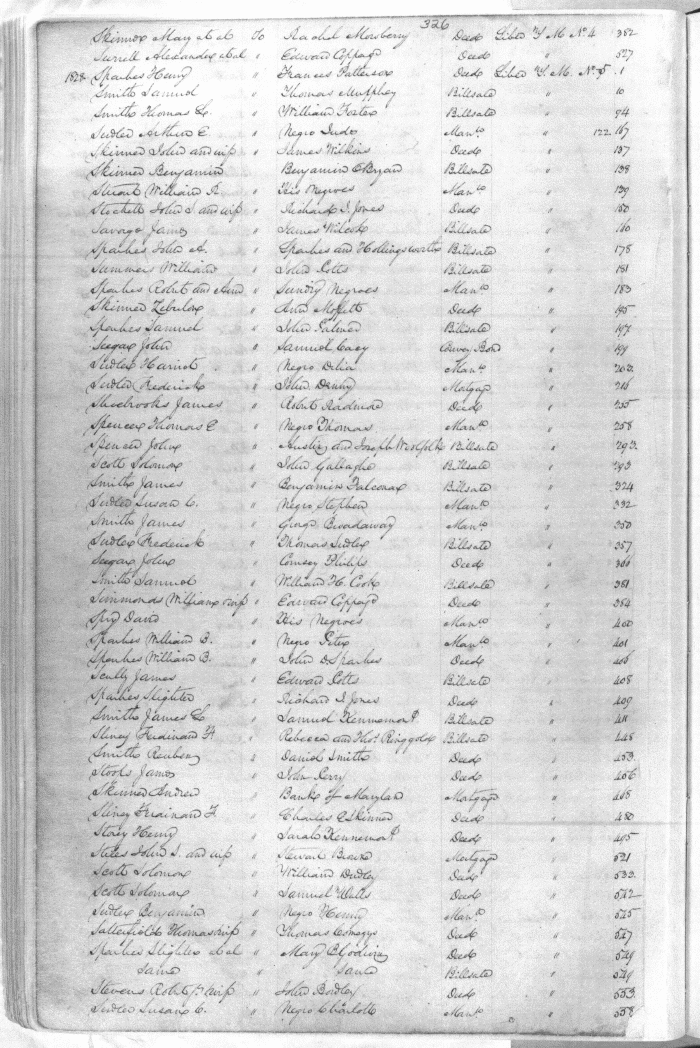 326
Skinner Mary et al To Rachel Mosberry Deed Liber T M No 4 382
Surrell Alexander et al " Edward Coppage Deed " 527
1828 Sparkes Henry " Frances Patterson Deed Liber T. M. No 5 1
Smith Samuel " Thomas Murphey Billsale " 10
Smith Thomas L. " William Foster Billsale " 94
Sudler Arthur E. " Negro Jude Manso " 122 167
Skinner John and wife " James Wilkins Deed " 137
Skinner Benjamin " Benjamin OBryan Billsale " 138
Stuart William R " His Negroes Manso " 139
Stockett John S. and wife " Richard I. Jones Deed " 150
Savage James " James Wilcox Billsale " 160
Sparkes John A. " Sparkes and Hollingsworth Billsale " 178
Summers William " John Potts Billsale " 181
Sparkes Robert and Ann " Sundry Negroes Manso " 183
Skinner Zebulon " Ann Moffett Deed " 195
Sparkes Samuel " John Palmer Billsale " 197
Seegar John " Samuel Cacy Convey Bond " 199
Sudler Harriot " Negro Delia Manso " 203
Sudler Frederick " John Denny Mortgage " 216
Sherbrooks James " Robert Readmon Deed " 255
Spencer Thomas E " Negro Thomas Manso " 258
Spencer John " Austin and Joseph Westfolk Billsale " 293
Scott Solomon " John Gallagher Billsale " 293
Smith James " Benjamin Falconar Billsale " 324
Sudler Susan C. " Negro Stephen Manso " 332
Smith James " George Broadaway Manso " 350
Sudler Frederick " Thomas Sudler Billsale " 357
Seegar John " Comsey Philips Deed " 366
Smith Samuel " William H. Cook Billsale " 381
Simmonds William & wife " Edward Coppage Deed " 384
Spry David " His Negroes Manso " 400
Sparkes William B. " Negro Peter Manso " 401
Sparkes William B. " John D. Sparkes Deed " 406
Scully James " Edward Potts Billsale " 408
Sparkes Slighter " Richard I Jones Deed " 409
Smith James L " Samuel Kennemont Billsale " 411
Sliney Ferdinand H " Rebecca and Thos. Ringgold Billsale " 448
Smith Reuben " Daniel Smith Deed " 453
Stoops James " John Perry Deed " 456
Skinner Andrew " Bank of Marylan Mortgage " 468
Sliney Ferdinand F. " Charles E Skinner Deed " 480
Story Henry " Sarah Kennemont Deed " 495
Stiles John S. and wife " Stewart Brown Mortgage " 521
Scott Solomon " William Dudley Deed " 533
Scott Solomon " Samuel Wells Deed " 542
Sudler Benjamin " Negro Henry Manso " 545
Satterfield Thomas & wife " Thomas Comegys Deed " 547
Sparkes Slighter et al " Mary Deed " 549
Same " Same Billsale " 549
Stevens Robert & wife " John Bodley Deed " 553
Sudler Susan C. " Negro Charlotte Manso " 558